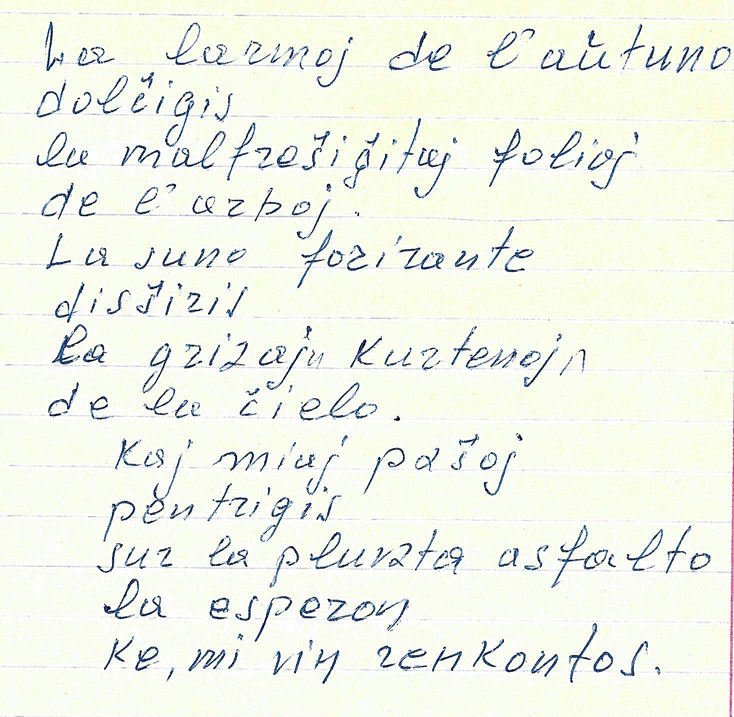 La larmoj de l' aŭtuno
dolĉigis
la malfreŝiĝitaj folioj
de l' arboj.
La suno forirante
disŝiris
La grizajn kurtenojn
de la ĉielo.
Kaj miaj paŝoj
pentrigis
sur la pluvzta asfalto
la esperon
Ke, mi vin renkontos.